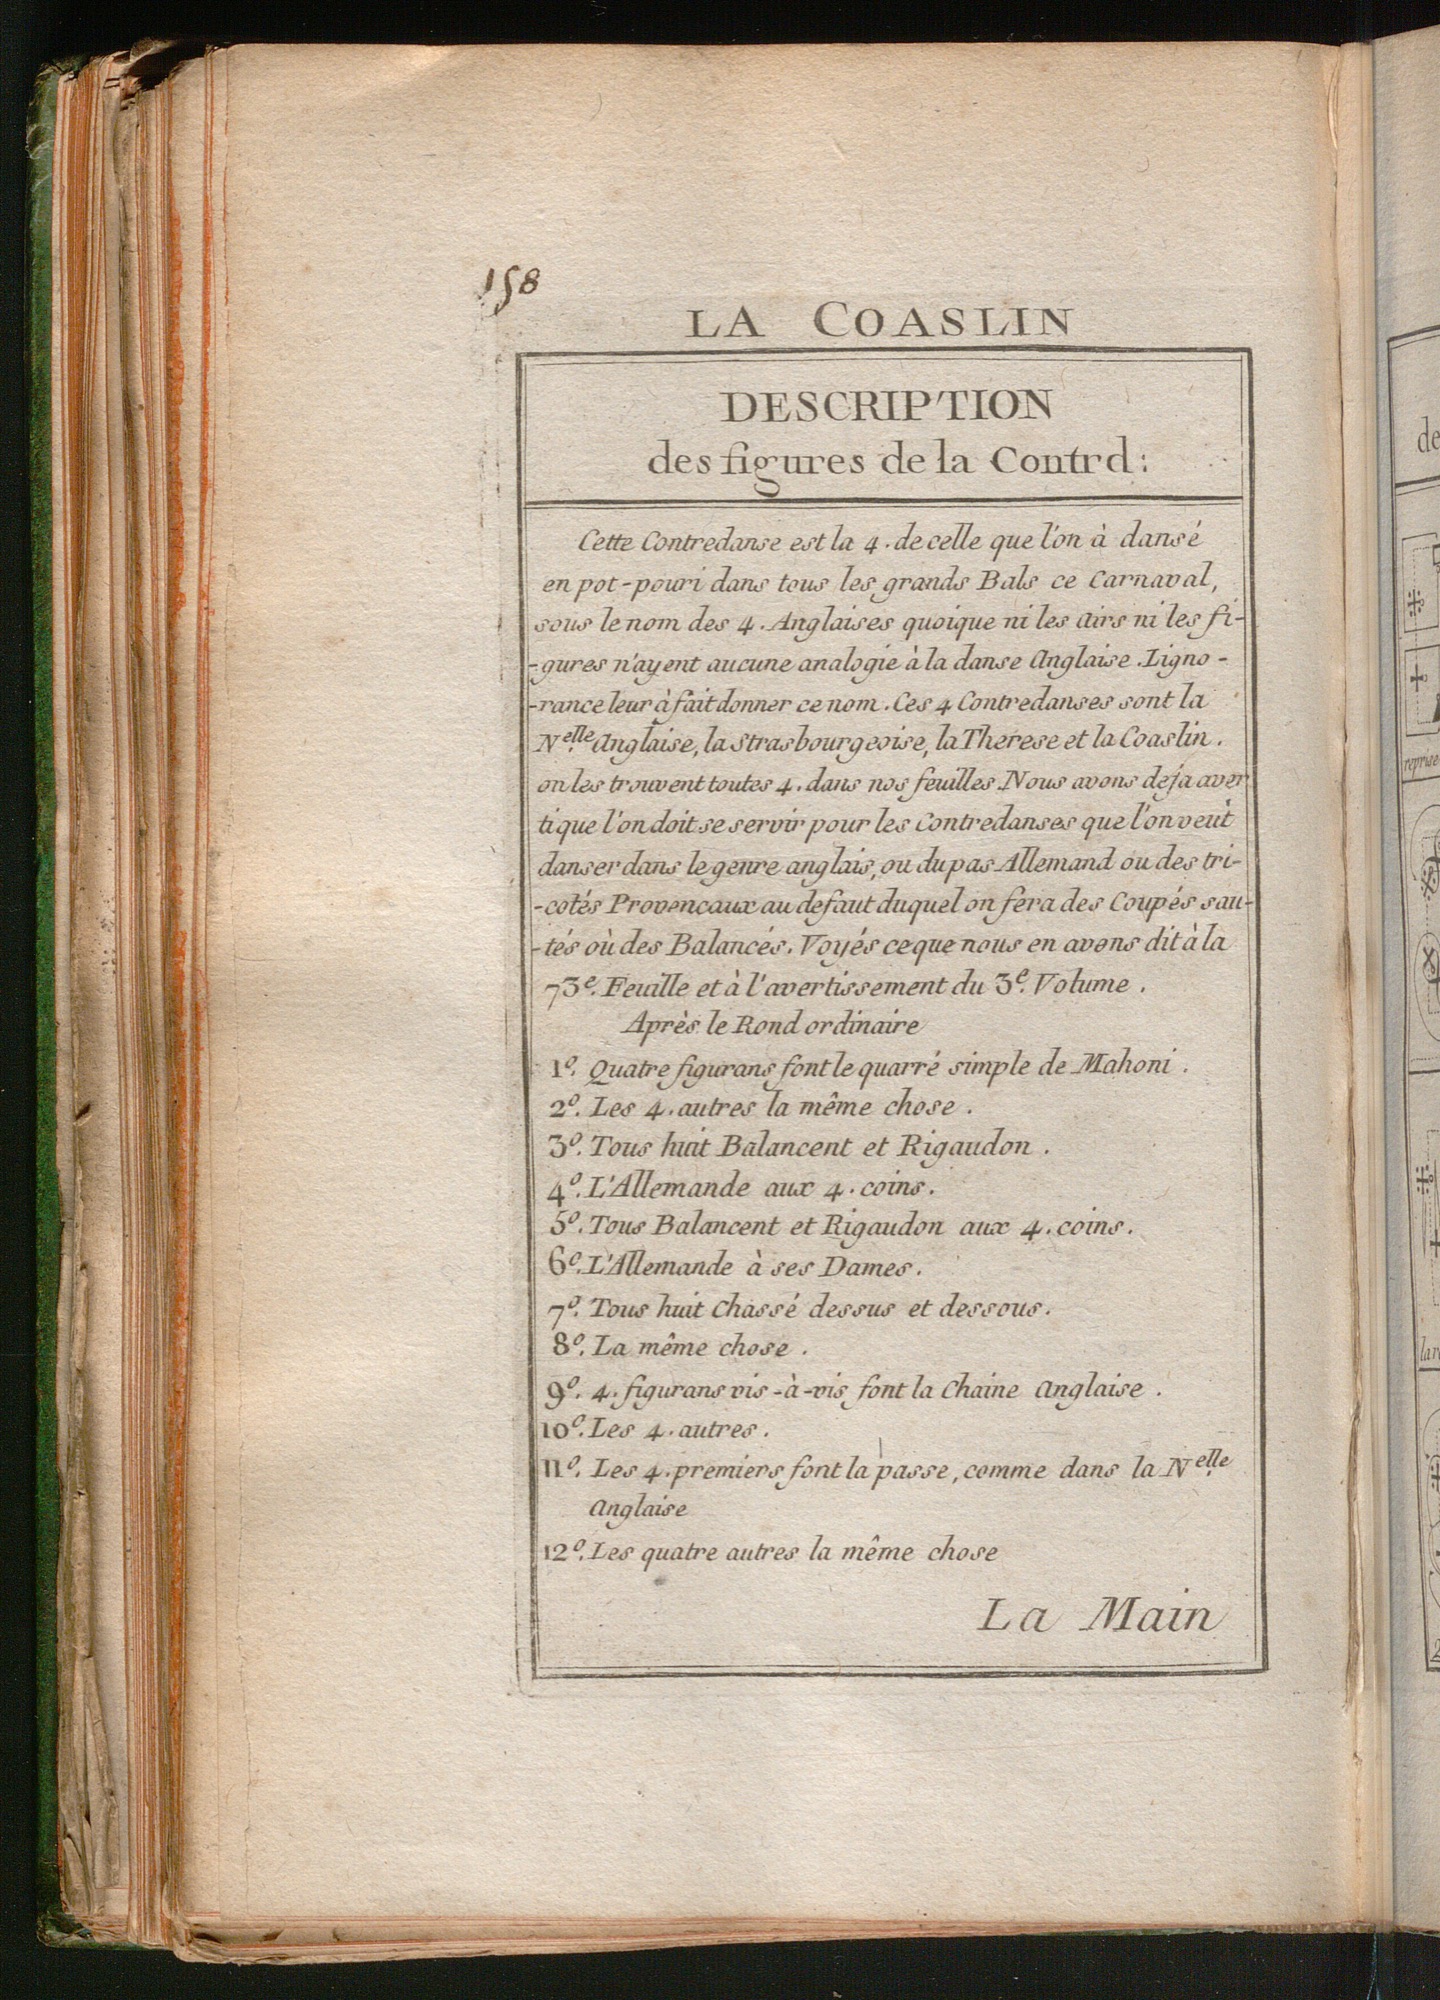 158
LA COASLIN
DESCRIPTION
des figures de la Contrd:
Cette Contredanse est la 4. de celle que l'on à dansé
en pot-pouri dans tous les grands Bals ce Carnaval,
sous le nom des 4. Anglaises quoique ni les airs ni les fi-
-gures n'ayent aucune analogie à la danse Anglaise. Ligno-
-rance leur à fait donner ce nom. Ces 4 Contredanses sont la
N.elle Anglaise, la Strasbourgeoise, la Therese et la Coaslin.
on les trouvent toutes 4. dans nos feuilles. Nous avons deja aver
ti que l'on doit se servir pour les Contredanses que l'on veut
danser dans le genre anglais, ou du pas Allemand ou des tri-
-cotés Provencaux au defaut duquel on fera des Coupés sau-
-tés où des Balancés. Voyés ce que nous en avons dit à la
73e. Feuille et à l'avertissement du 3e. Volume.
Après le Rond ordinaire
1o. Quatre figurans font le quarré simple de Mahoni.
2o. Les 4. autres la même chose.
3o. Tous huit Balancent et Rigaudon.
4o. L'Allemande aux 4. coins.
5o. Tous Balancent et Rigaudon aux 4. coins.
6o. L'Allemande à ses Dames.
7o. Tous huit Chassé dessus et dessous.
8o. La même chose.
9o. 4. figurans vis-à-vis font la Chaine Anglaise.
10o. Les 4. autres.
11o. Les 4. premiers font la passe, comme dans la N.elle
Anglaise
12o. Les quatre autres la même chose
La Main
de
reprise
la r
2